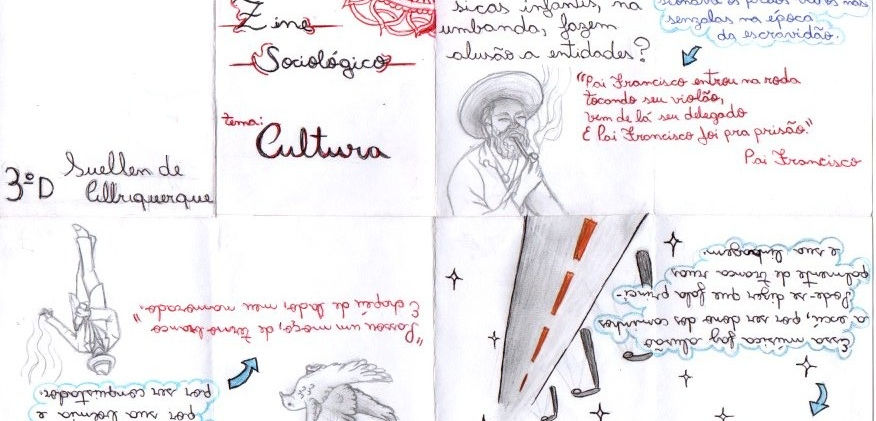 Zine
Sociológico
tema:
Cultura
3ºD
Suellen de
Albuquerque
sicas infantis, na
umbanda, fazem
alusão a entidades?
senzalas na época
da escravidão.
"Pai Francisco entrou na roda
tocando seu violão,
vem de lá seu delegado
E Pai Francisco foi pra prisão."
Pai Francisco
"Passou um moço, de terno branco
E chapéu de lado, meu namorado."
por sua boêmia e
por ser conquistador.
Essa música faz alusão
a exú, por ser dono dos caminhos
Pode-se dizer que fala princi-
palmente de tranca ruas
e sua linhagem.